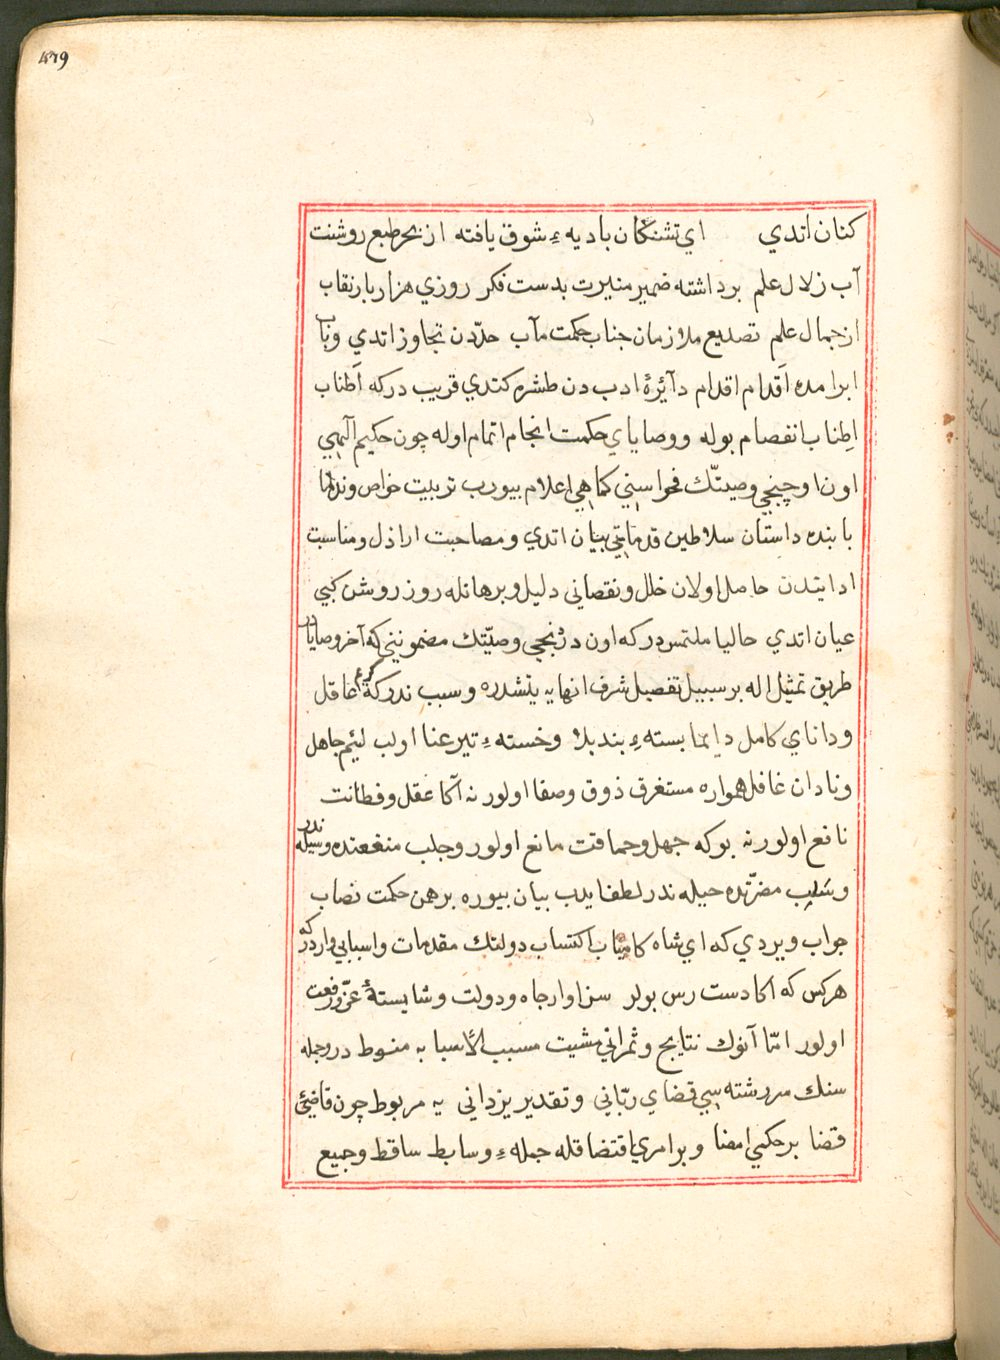 479
كنان اتدي اي تشنكان باديهء شوق يافته از بحر طبع روشنت
آب زلال علم برداشته ضمير منيرت بدست فكر روزي هزار بار نقاب
از جمال علم تصديع ملازمان جناب حكمت مآب حدّدن تجاوز اتدي وباب
ابرامده اَقدام اقدام دآئرۀ ادب دن طشره كتدي قريب دركه اَطناب
اِطناب انفصام بوله ووصاياي حكمت انجام اتمام اوله چون حكيم الٓهي
اون اوچنجي وصيتّك فحواسني كماهي اعلام بيورب تربيت خواص وندما
بابنده داستان سلاطين قدماتي بيان اتدي ومصاحبت اراذل ومناسبت
ادانيدن حاصل اولان خلل ونقصاني دليل وبرهانله روز روشن كبي
عيان اتدي حاليا ملتمس دركه اون دڗنجي وصيّتك مضمونيني كه آخر وصايادر
طريق تمثيل اله بر سبيل تفصيل شرف انهايه يتشدره وسبب ندركه كريم عاقل
وداناي كامل دايما بستهء بند بلا وخستهء تير عنا اولب لئيم جاهل
ونادان غافل همواره مستغرق ذوق وصفا اولور نه آكا عقل وفطانت
نافع اولور نه بوكه جهل وحماقت مانع اولور وجلب منفعتده وسيله ندر
وسلب مضرّتده حيله ندر لطفا يدب بيان بيوره برهمن حكمت نصاب
جواب ويردي كه اي شاه كامياب اكتساب دولتك مقدمات واسبابي واردركه
هركس كه اكا دست رس بولر سزاوار جاه ودولت وشايستۀ عزّ ورفعت
اولور امّا آنوك نتايج وثمراتي مشيت مسبب الأسبابه منوط در وجمله
سنك سررشته سي قضاي ربّاني وتقدير يزداني يه مربوط چون قاضئ
قضا بر حكمي امضا وبر امري اقتضا قله جملهء وسايط ساقط وجميع